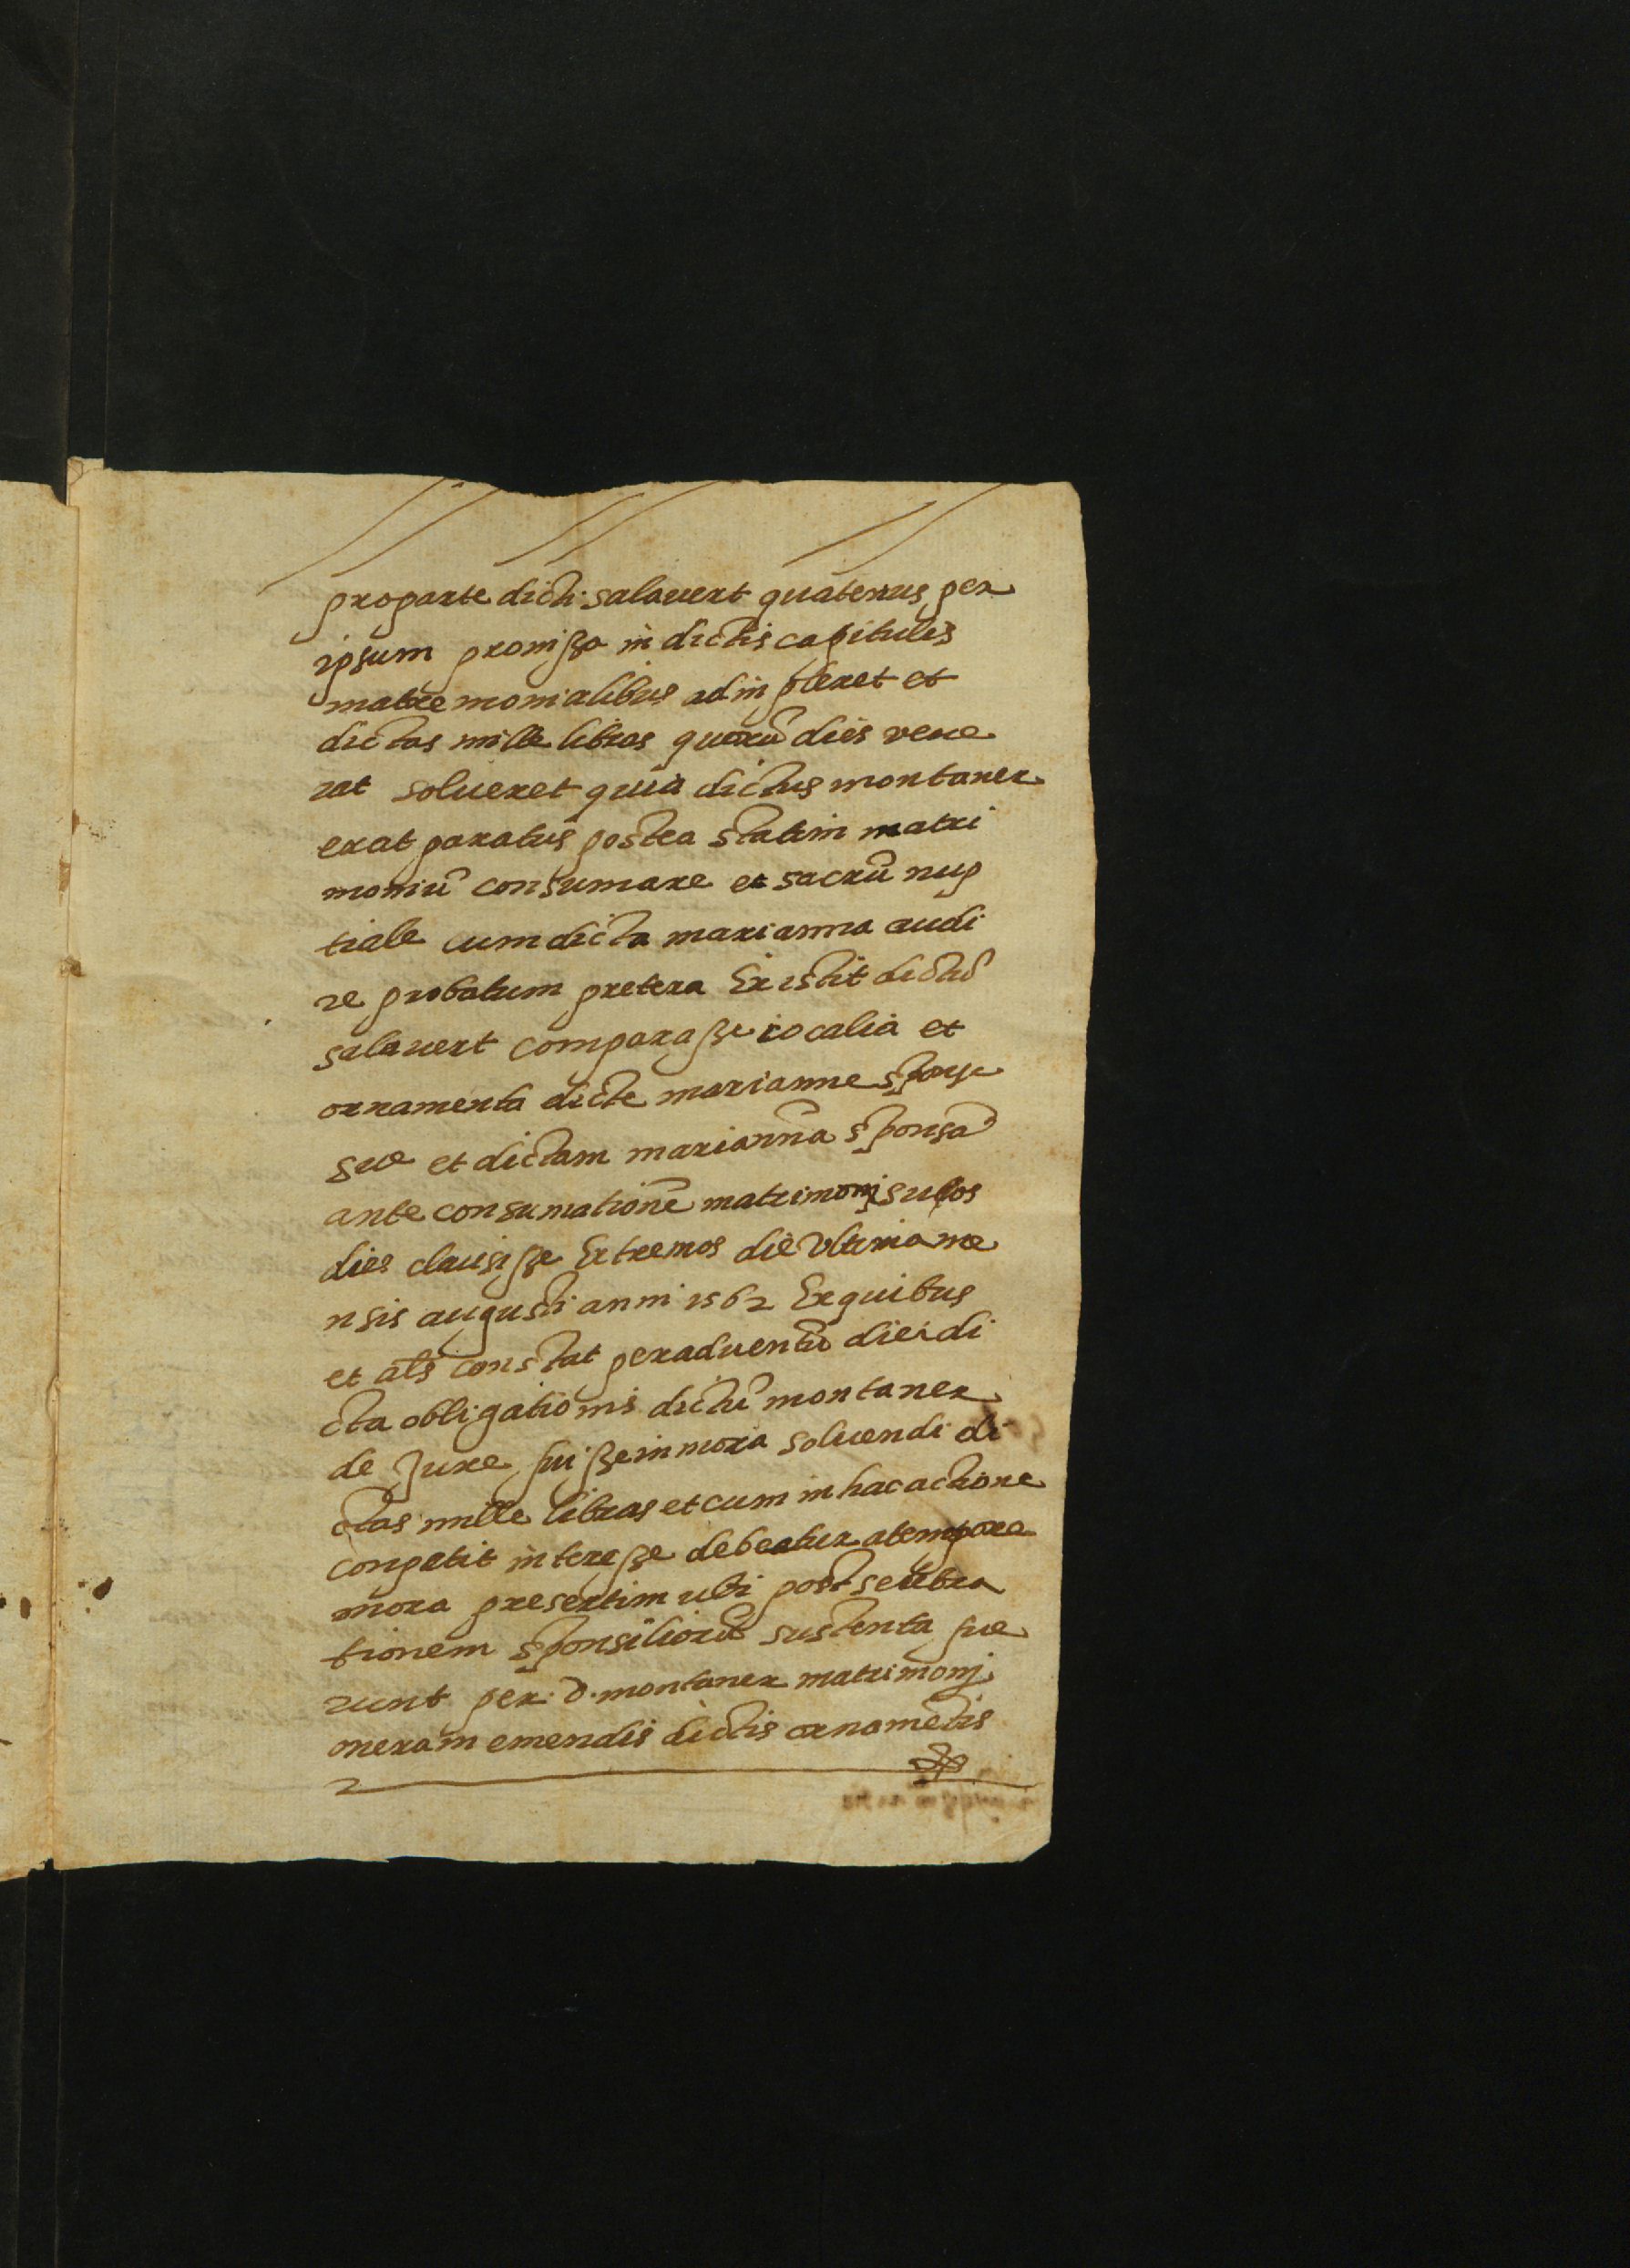 pro parte dicti salavert quatenus per
ipsum promissa in dictis capitulis
matremonialibus adinpleret et
dictas mille libras quarũ dies vene
rat solueret quia dictus montaner
erat paratus postea statim matri
moniũ consumare et sacrũ nup
tiale cum dicta marianna audi
re probatum pretera Existit dictũ
salavert comparasse iocalia et
ornamenta dicte marianne sponse
sue et dictam mariannã sponsã
ante consumationẽ matrimonj suos
dies clausisse Extremos die Ultima me
nsis augusti anni 1562 Ex quibus
et als constat per adventũ diei di
cta obligationis dictũ montaner
de Jure fuisse in mora soluendi di
ctas mille libras et cum in hac actione
conpetit interesse debeatur a tempore
mora presertim ubi post selebra
tionem sponsiliorũ sustenta fue
runt per d. montaner matrimonj
onera in emendis dictis ornamẽtis